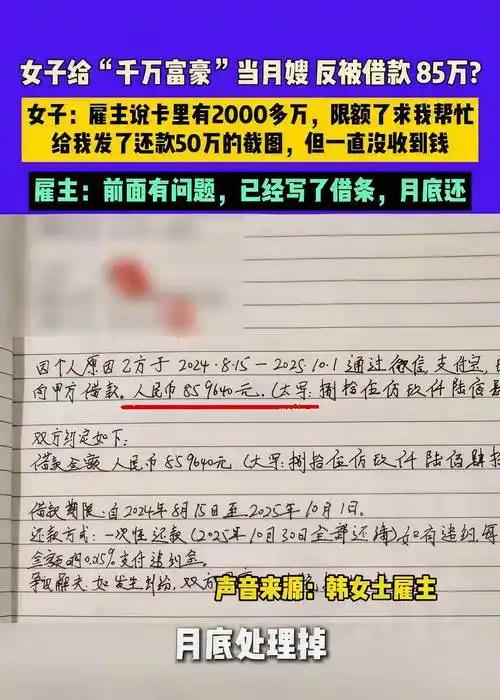 女子给“千万富豪”当月嫂 反被借款 85万?
女子：雇主说卡里有2000多万，限额了求我帮忙
给我发了还款50万的截图，但一直没收到钱
雇主：前面有问题，已经写了借条，月底还
因个人原因乙方于2024.8.15—2025.10.1通过微信,支付宝,
向甲方借款。人民币859640元.(大写:捌拾伍仟玖仟陆佰
双方约定如下:
借款金额 人民币859640元(大写:捌拾伍仟玖仟陆佰肆拾
借款期限:自2024年8月15日至2025年10月1日。
还款方式:一次性还款(2025年10月30日全部还清)如有违约,每
金额的0.015%支付违约金。
争取解决,如发生纠纷,双方
声音来源：韩女士雇主
月底处理掉